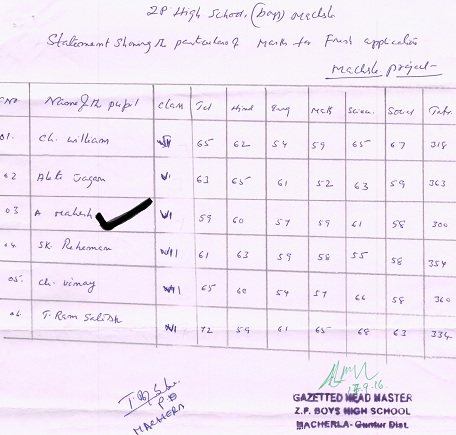 ZP High School (boys) Macherla
Statement showing the particulars of Marks for Fresh application
Macherla project
S.No Name of the pupil class Tel Hind Eng Mats Scien. Social Total
01. Ch. william VI 65 62 54 59 65 67 318
02 Abti Jagan VI 63 65 61 52 63 59 363
03 A Mahesh VI 59 60 57 59 61 58 300
04. SK. Reheman VII 61 63 59 58 55 58 354
05. Ch. Vimay VII 65 60 54 57 66 58 360
06 T. Ram VI 72 59 61 65 68 63 334
17.9.16.
GAZETTED HEAD MASTER
Z.P. BOYS HIGH SCHOOL
MACHERLA- Guntur Dist.
MACHERLA